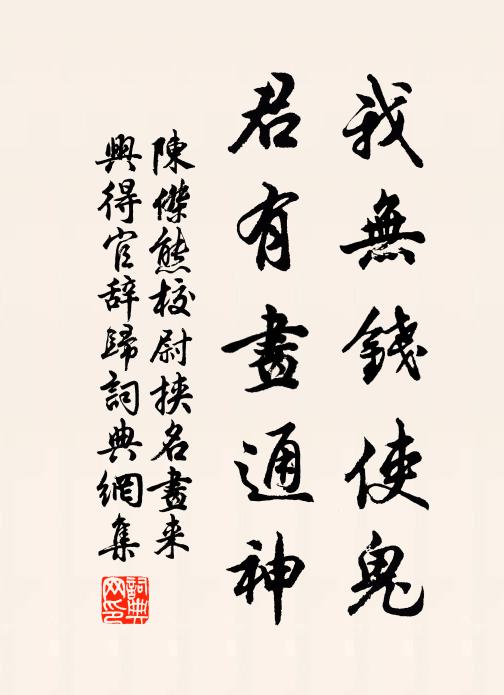 我無錢使鬼
君有畫通神
陳傑熊校尉挾名畫来
興得官辞歸詞典網集
詞典
网印